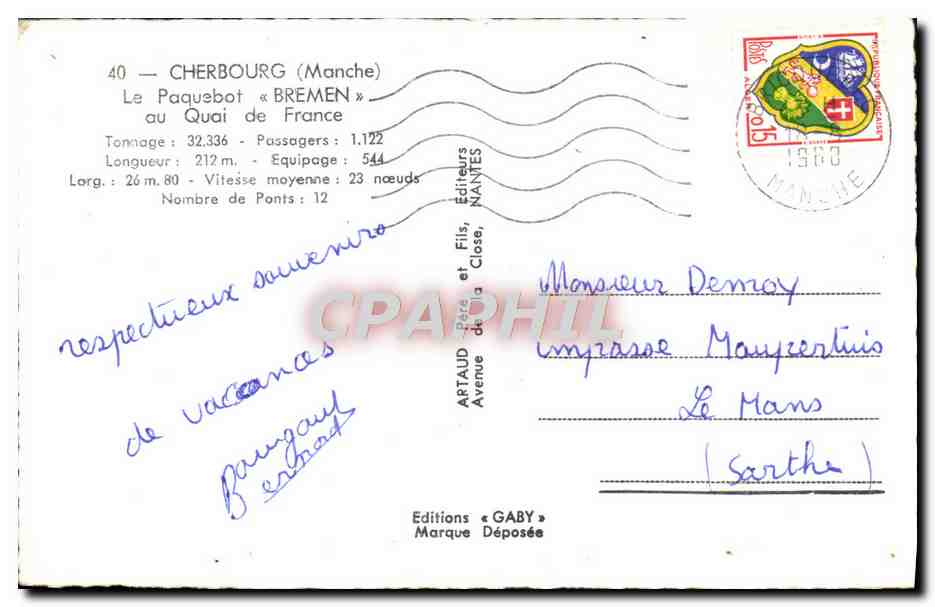 40 — CHERBOURG (Manche)
Le Paquebot « BREMEN »
au Quai de France
Tonnage : 32.336 - Passagers : 1.122
Longueur : 212 m. - Equipage : 544
Larg. : 26 m. 80 - Vitesse moyenne : 23 nœuds
Nombre de Ponts : 12
respectueux souvenirs
de vacances
ARTAUD Père et Fils, Editeurs
Avenue de la Close, NANTES
Postes
REPUBLIQUE FRANÇAISE
ALGER
0.15
1960
MANCHE
Monsieur Demoy
impasse Maupertuis
Le Mans
(Sarthe)
CPAPHIL
Editions « GABY »
Marque Déposée